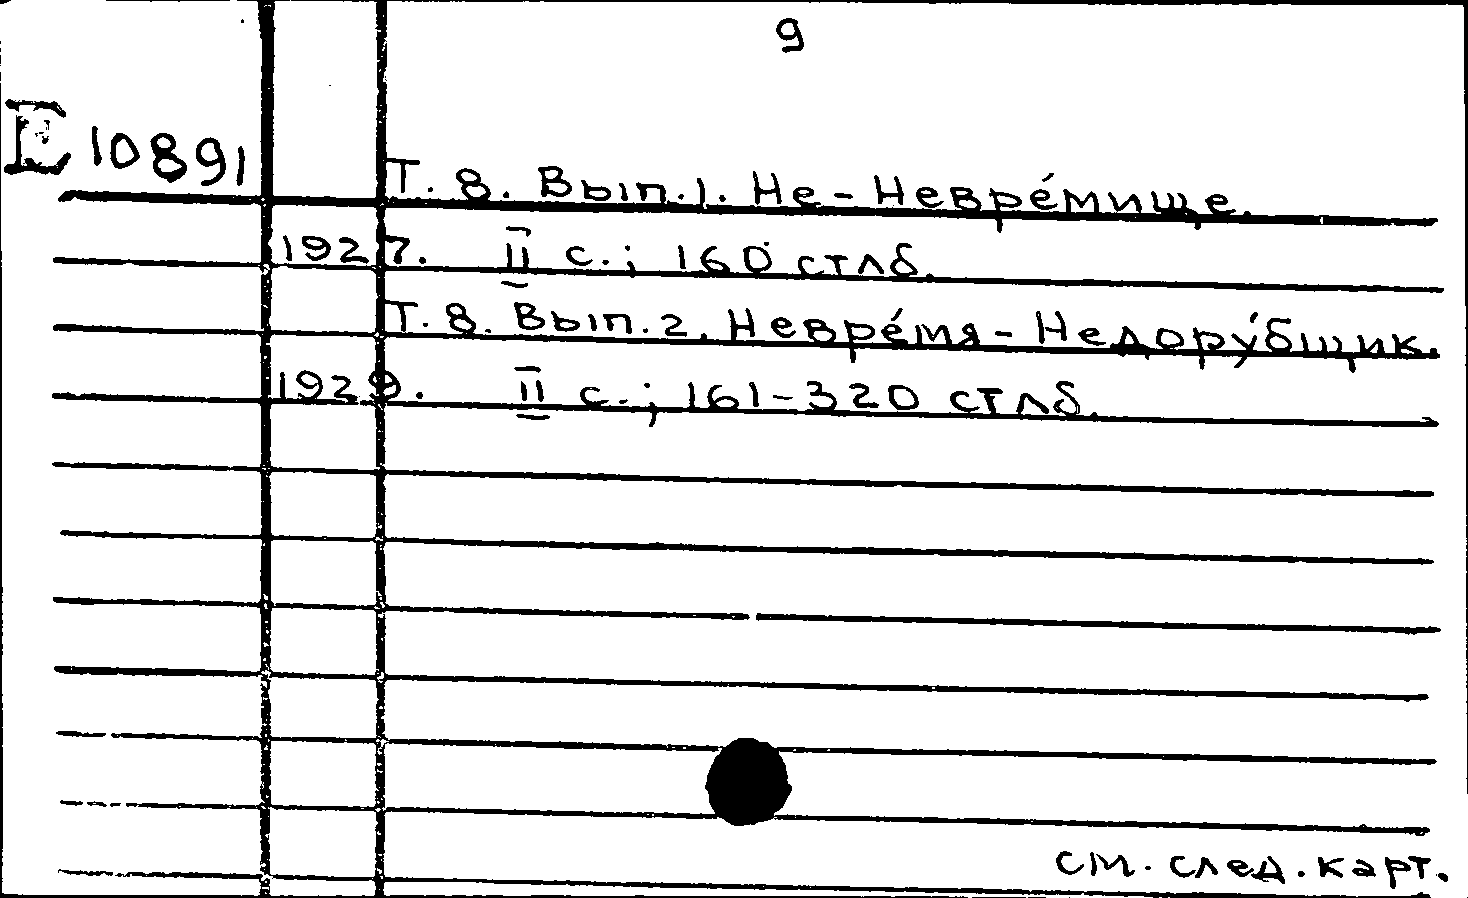 9
E 10891
Т. 8. Вып. 1. Не - Невре́мище.
1927. II с.; 160 стлб.
Т. 8. Вып. 2. Невре́мя - Недору́бщик.
1929. II с.; 161-320 стлб.
см. след. карт.